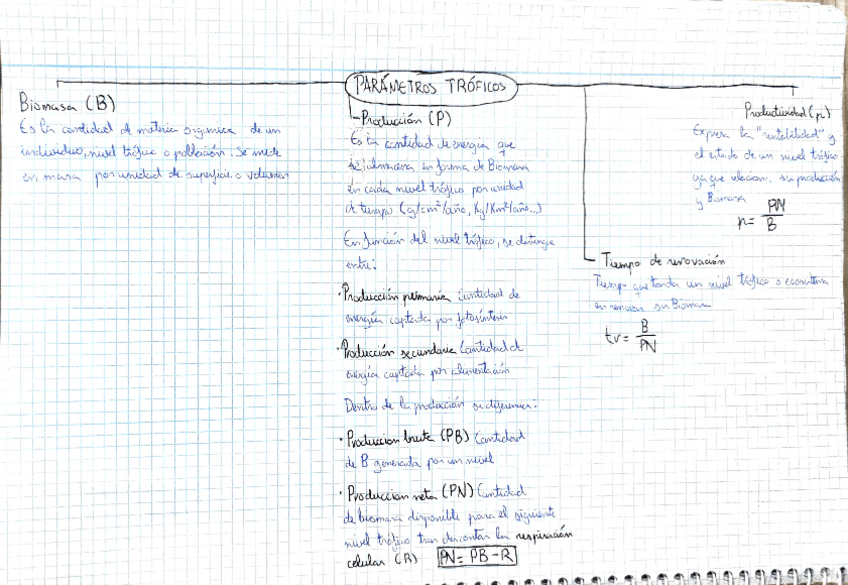 PARÁMETROS TRÓFICOS
Biomasa (B)
Es la cantidad d materia organica de un
individuo, nivel trófico o población. Se mide
en masa por unidad de superficie o volumen
Producción (P)
Es la cantidad de energia que
se almacena en forma de Biomasa
en cada nivel trófico por unidad
d tiempo (g/cm²/año, Kg/Km²/año...)
En función del nivel trófico, se distingue
entre:
· Producción primaria Cantidad de
energía captada por fotosíntesis
· Producción secundaria Cantidad d
energía captada por alimentación
Dentro de la producción se diferencia:
· Produccion bruta (PB) Cantidad
de B generada por un nivel
· Produccion neta (PN) Cantidad
de biomasa disponible para el siguiente
nivel trófico tras descontar la respiración
celular (R) PN = PB - R
Productividad (p)
Expresa la "rentabilidad" y
el estado de un nivel trófico
ya que relaciona su producción
y Biomasa
p = PN / B
Tiempo de renovación
Tiempo que tarda un nivel trófico o ecosistema
en renovar su Biomasa
tr = B / PN